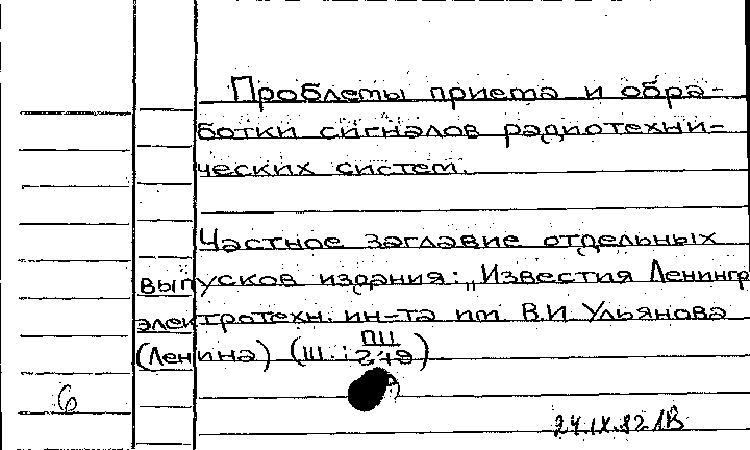 Проблемы приема и обра-
ботки сигналов радиотехни-
ческих систем.
Частное заглавие отдельных
выпусков издания: „Известия Ленингр
электротехн. ин-та им. В.И Ульянова
(Ленина) (Ш.: ПЦ/249)
6
24.IX.82